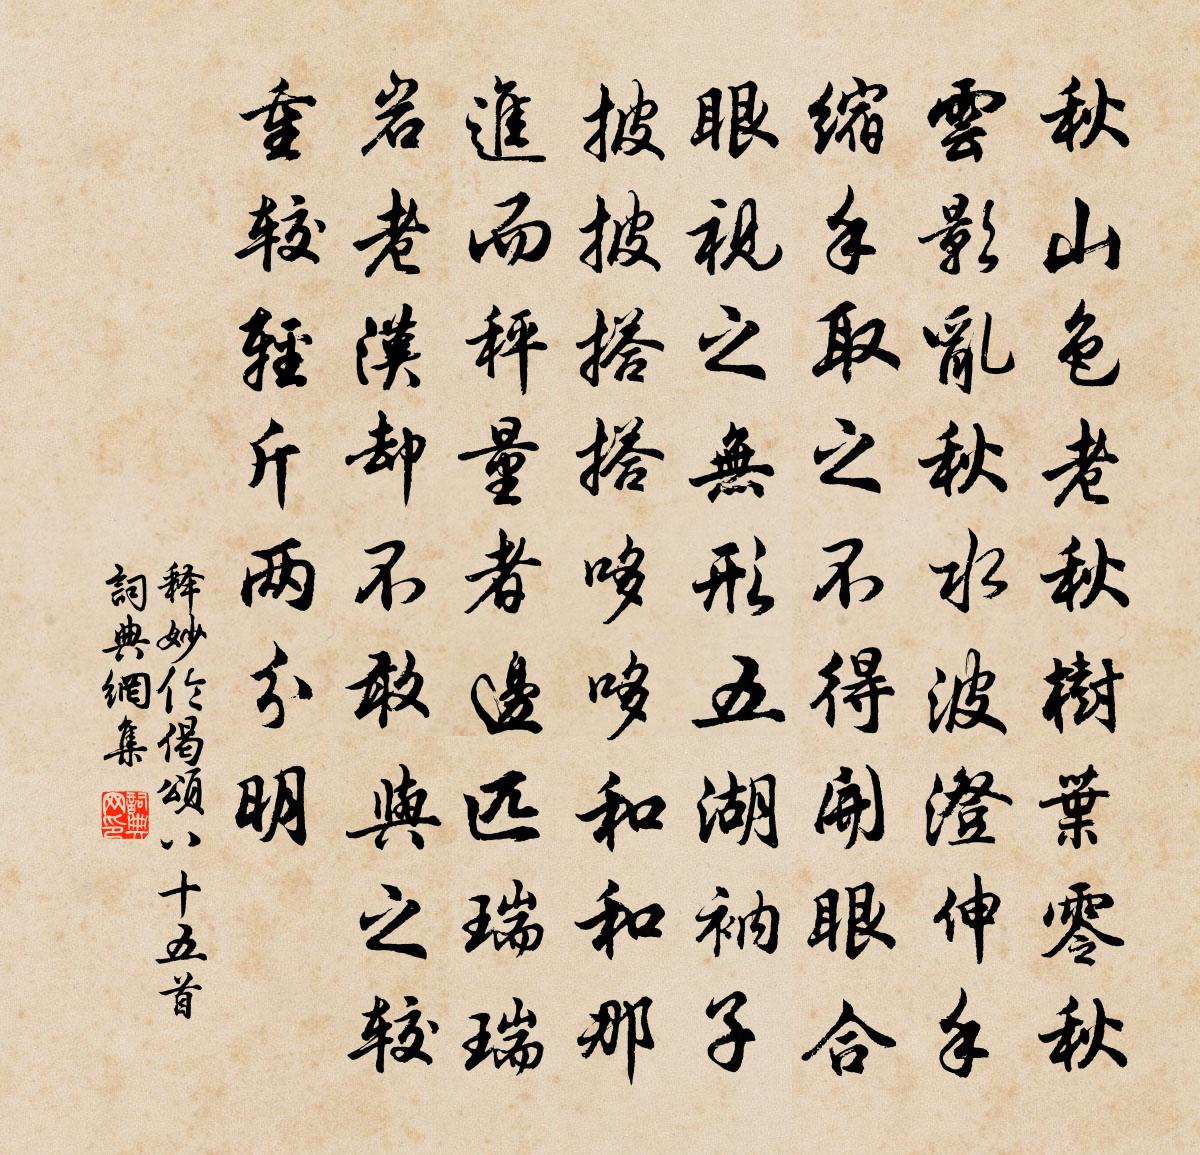 秋山色老秋樹葉零秋
雲影亂秋水波澄伸手
縮手取之不得開眼合
眼視之無形五湖衲子
披披搭搭哆哆和和那
進而秤量者邊匹瑞瑞
岩老漢却不敢與之較
重較輕斤两分明
释妙伦偈頌八十五首
詞典網集
詞典网印